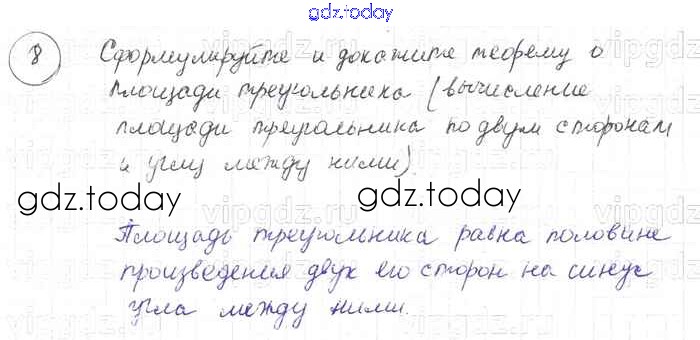 gdz.today
8 Сформулируйте и докажите теорему о
площади треугольника (вычисление
площади треугольника по двум сторонам
и углу между ними).
gdz.today gdz.today
Площадь треугольника равна половине
произведения двух его сторон на синус
угла между ними.